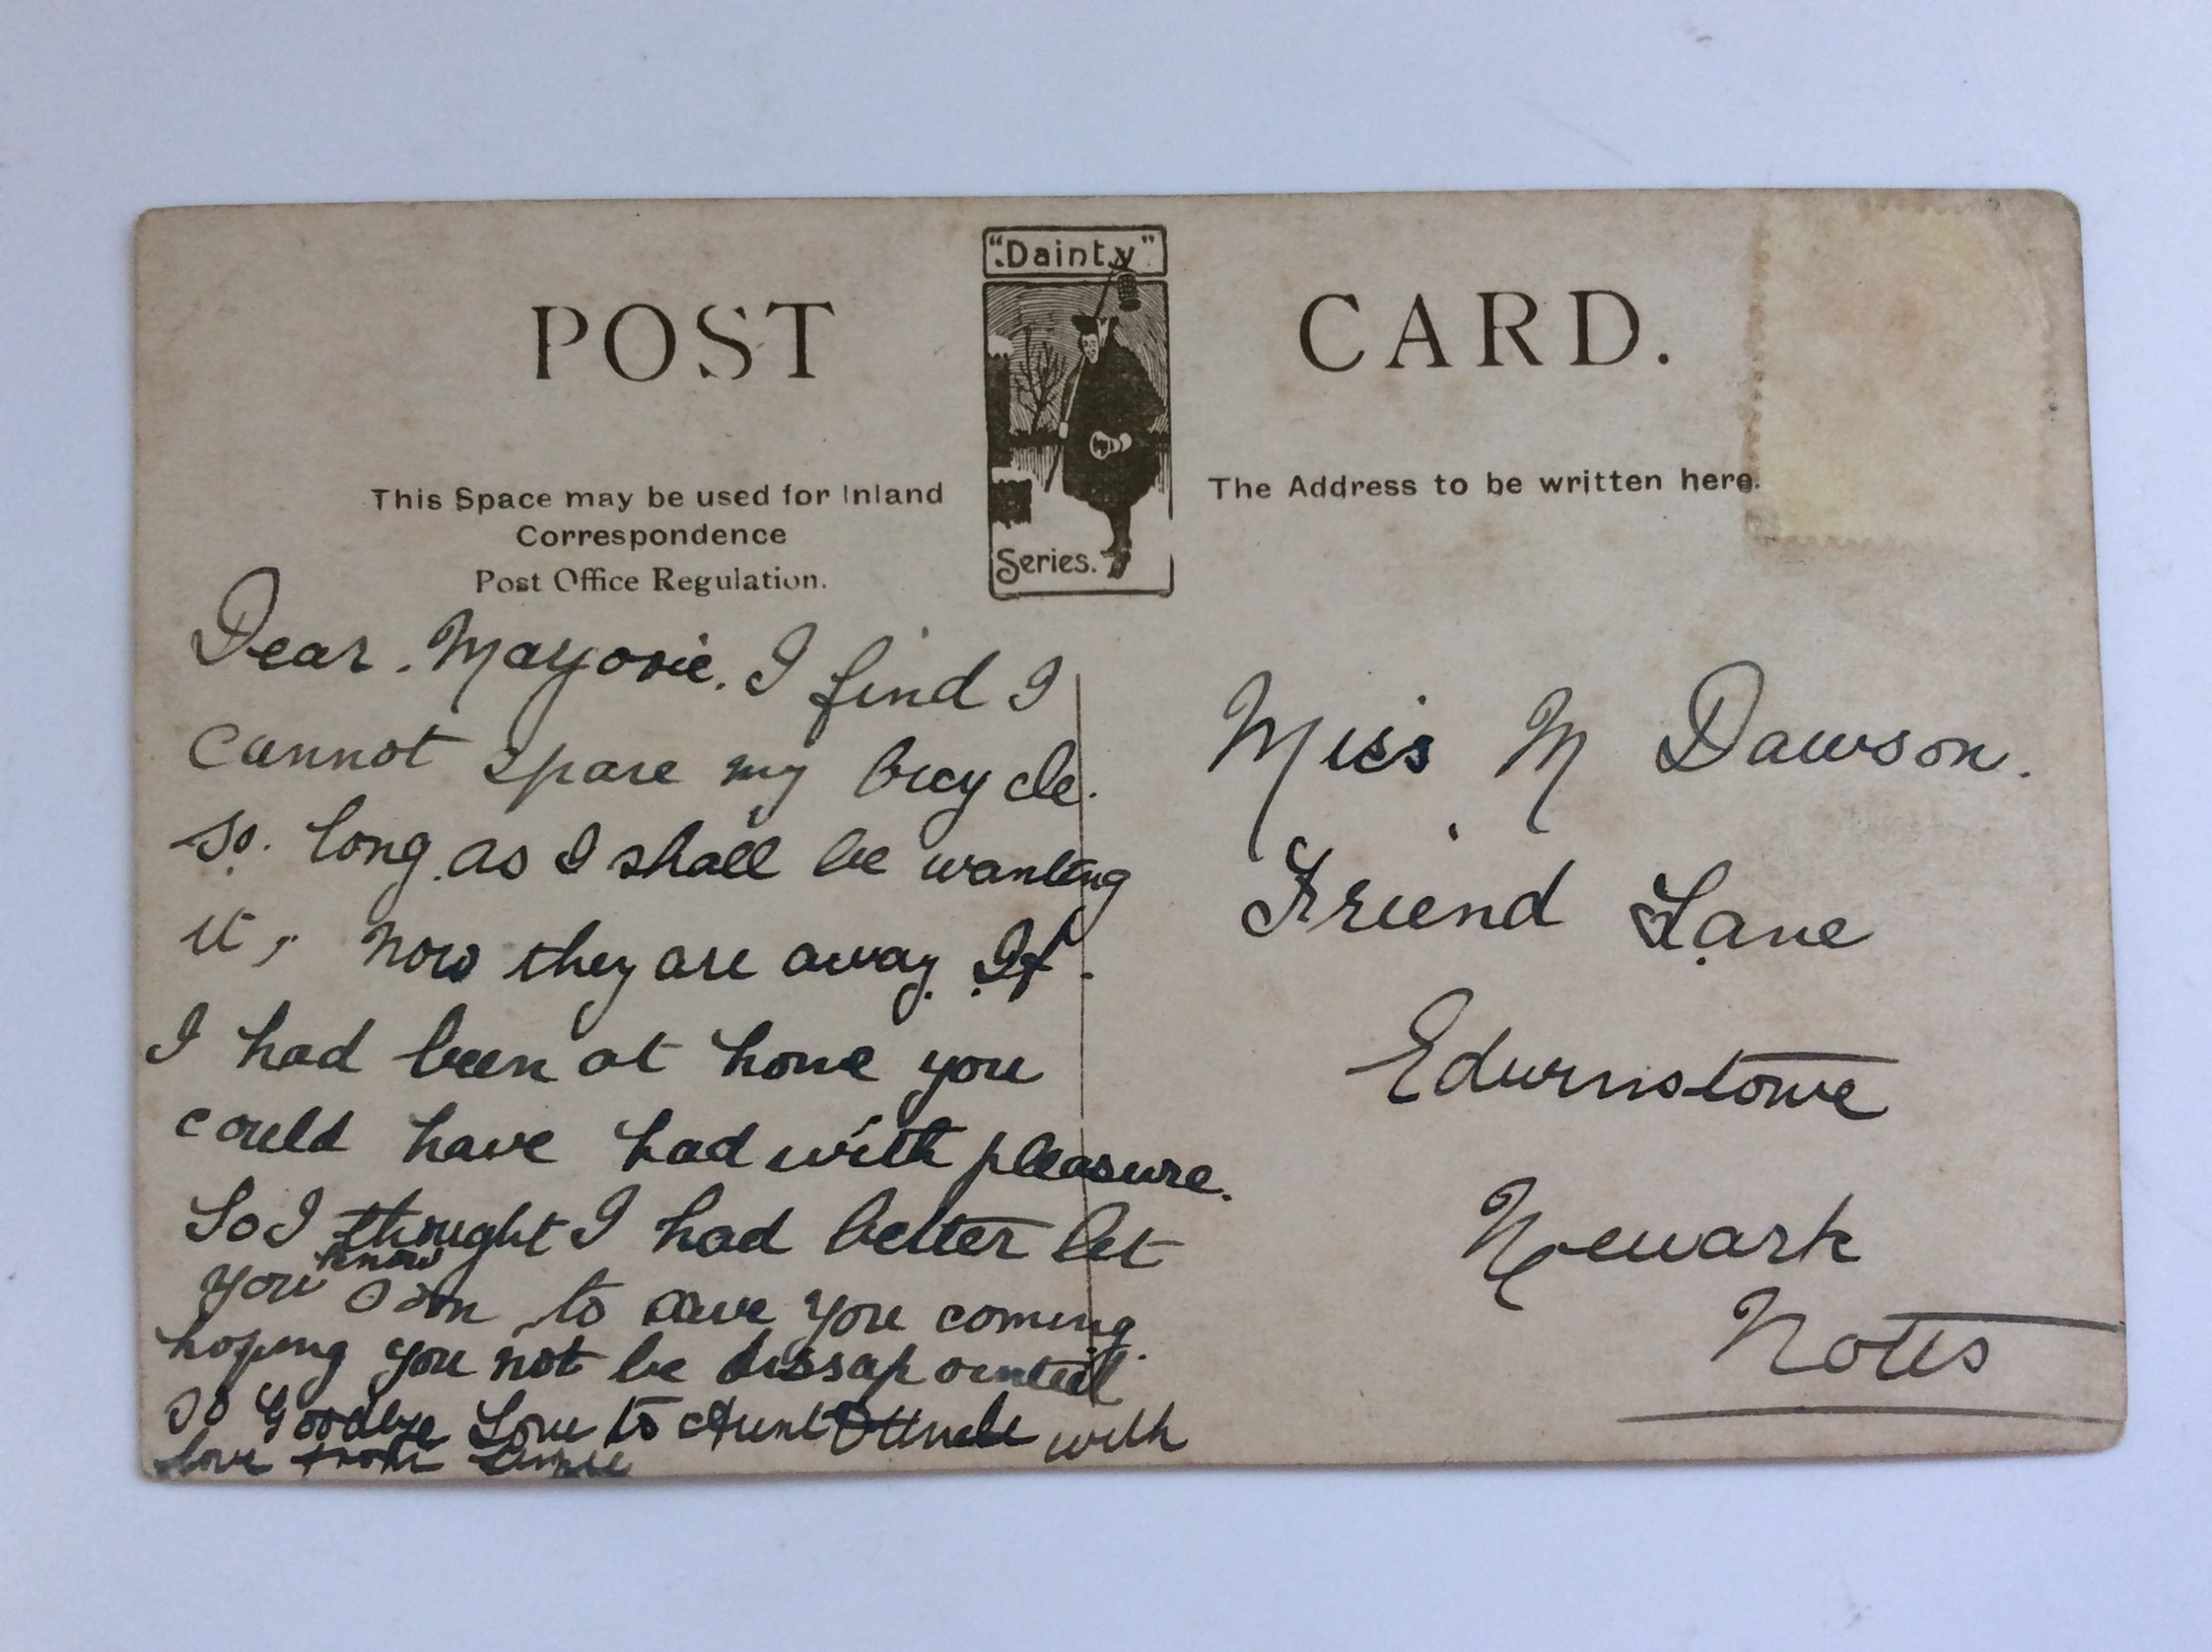 "Dainty"
Series.
POST CARD.
This Space may be used for Inland
Correspondence
Post Office Regulation.
The Address to be written here.
Dear. Marjorie. I find I
cannot spare my bicycle.
so. long as I shall be wanting
it, now they are away. If
I had been at home you
could have had with pleasure.
So I thought I had better let
know
you to save you coming.
hoping you not be dissapointed
so Goodbye Love to Aunt & Uncle with
love from
Miss M Dawson.
Friend Lane
Edwinstowe
Newark
Notts